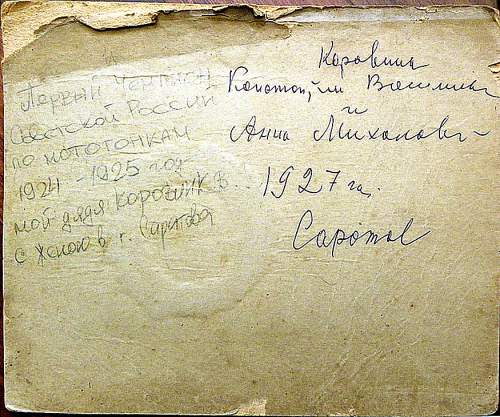 Первый Чемпион
Советской России
по мотогонкам
1924 - 1925 год
мой дядя Коровин В..
с женою в г. Саратове
Коровины
Василий
и
Анна Михайловна
1927 га.
Саратов